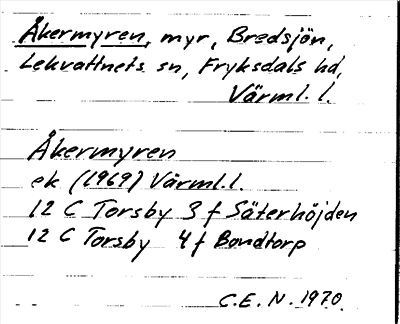 Åkermyren, myr, Bredsjön,
Lekvattnets sn, Fryksdals hd,
Värml. l.
Åkermyren
ek (1969) Värml.l.
12 C Torsby 3 f Säterhöjden
12 C Torsby 4 f Bondtorp
C.E.N. 1970